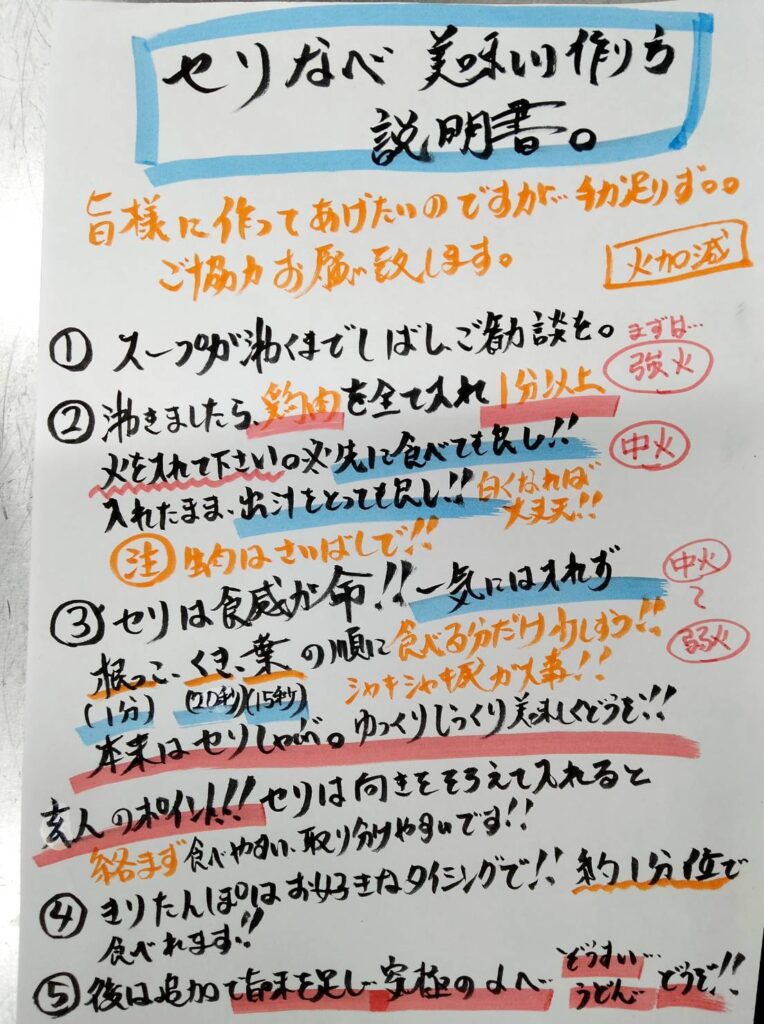 セリなべ 美味しい作り方
説明書。
皆様に作ってあげたいのですが…手が足りず。。
ご協力お願い致します。
火加減
① スープが沸くまでしばしご勧談を。
まずは…
強火
② 沸きましたら、を全て入れ 1分以上
火を入れて下さい。※先に食べても良し!!
中火
入れたまま、出汁をとっても良し!!
白くなれば
大丈夫!!
注 生肉はさいばしで!!
③ セリは食感が命!! 一気には入れず
中火
〜
弱火
根っこ、くき、葉の順に 食べる分だけ少しずつ!!
(1分) (20秒)(15秒) シャキシャキ感が大事!!
本来はセリしゃぶ。ゆっくりじっくり美味しくどうぞ!!
玄人のポイント!! セリは向きをそろえて入れると
絡まず 食べやすい、取り分けやすいです!!
④ きりたんぽはお好きなタイミングで!! 約1分位で
食べれます!!
⑤ 後は追加で旨味を足し… 究極の〆へ
ぞうすい…
うどん… どうぞ!!